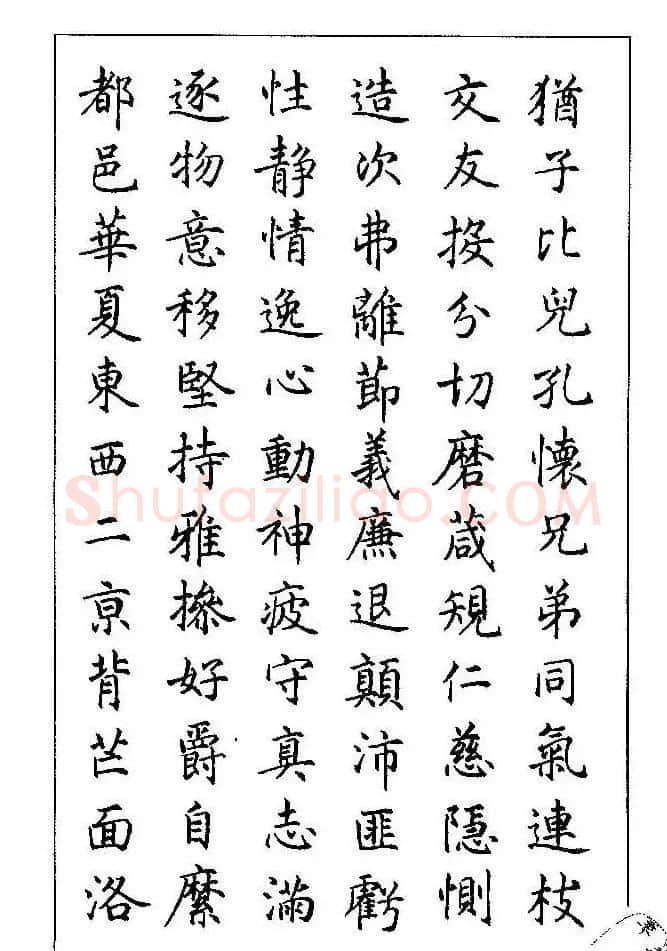 猶子比兒孔懷兄弟同氣連枝
交友投分切磨葴規仁慈隱惻
造次弗離節義廉退顛沛匪虧
性静情逸心動神疲守真志滿
逐物意移堅持雅摻好爵自縻
都邑華夏東西二亰背芒面洛
Shufaziliao.COM